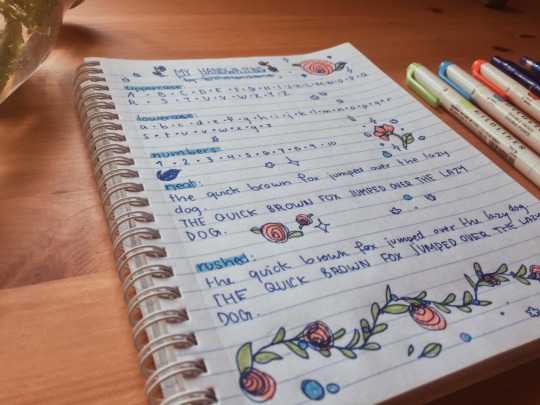 MY HANDWRITING
uppercase:
A • B • C • D • E • F • G • H • I • J • K • L • M • N • O • P • Q
R • S • T • U • V • W • X • Y • Z
lowercase:
a • b • c • d • e • f • g • h • i • j • k • l • m • n • o • p • q • r
s • t • u • v • w • x • y • z
numbers:
1 • 2 • 3 • 4 • 5 • 6 • 7 • 8 • 9 • 10
neat:
the quick brown fox jumped over the lazy
dog.
THE QUICK BROWN FOX JUMPED OVER THE LAZY
DOG.
rushed:
the quick brown fox jumped over the lazy dog.
THE QUICK BROWN FOX JUMPED OVER THE LAZY
DOG.
MILDLINER